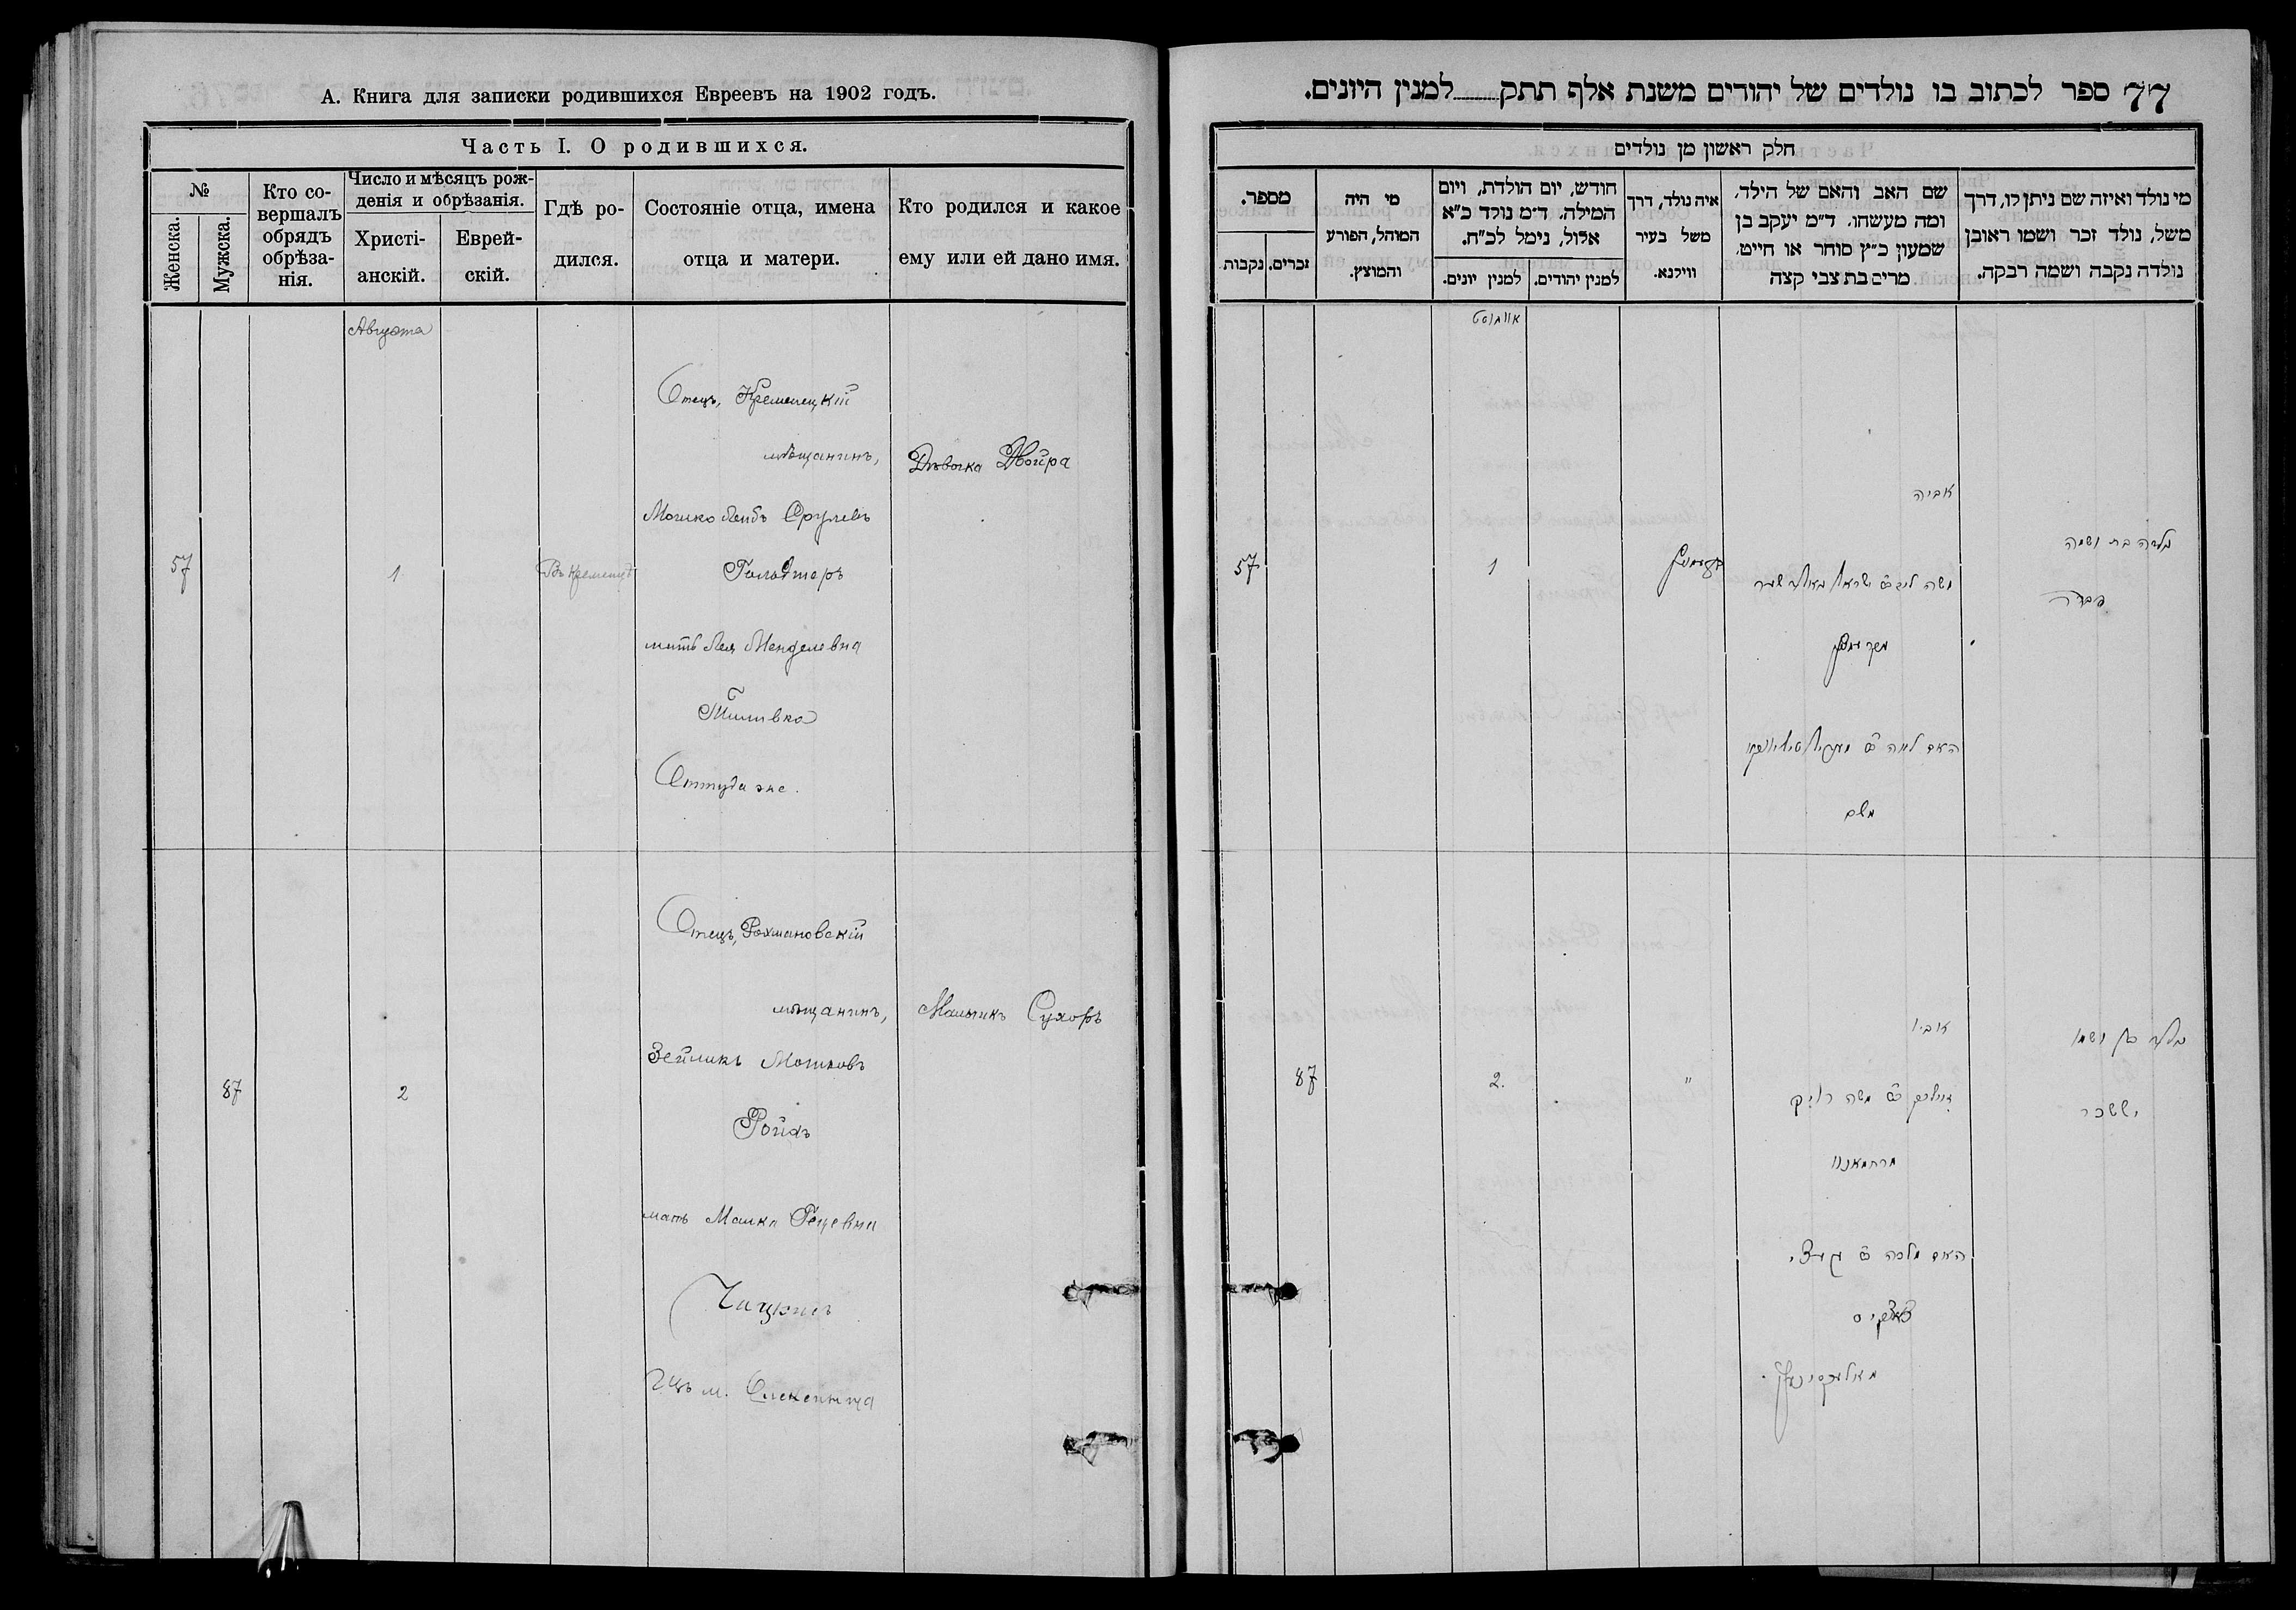 А. Книга для записки родившихся Евреевъ на 1902 годъ.
Часть I. О родившихся.
№
Женска.
Мужска.
Кто со-
вершалъ
обрядъ
обрѣза-
нія.
Число и мѣсяцъ рож-
денія и обрѣзанія.
Христі-
анскій.
Еврей-
скій.
Гдѣ ро-
дился.
Состояніе отца, имена
отца и матери.
Кто родился и какое
ему или ей дано имя.
Августа
57
1
Въ Кременцѣ
Отецъ, Кременецкій
мѣщанинъ,
Мошко Лейбъ Срулевъ
мать Лея Менделевна
Оттуда же.
Дѣвочка Двойра
87
2
Отецъ, Рахмановскій
мѣщанинъ,
Зейликъ Мошковъ
Ройхъ
мать Малка
Изъ м.
Мальчикъ Сухоръ
77 ספר לכתוב בו נולדים של יהודים משנת אלף תתק........למנין היונים.
חלק ראשון מן נולדים
מספר.
זכרים.
נקבות
מי היה
המוהל, הפורע
והמוצץ.
חודש, יום הולדת, ויום
המילה. ד״מ נולד כ״א
אלול, נימל לכ״ח.
למנין יהודים.
למנין יונים.
איה נולד, דרך
משל בעיר
ווילנא.
שם האב והאם של הילד.
ומה מעשהו. ד״מ יעקב בן
שמעון כ״ץ סוחר או חייט.
מרים בת צבי קצה
מי נולד ואיזה שם ניתן לו, דרך
משל, נולד זכר ושמו ראובן
נולדה נקבה ושמה רבקה.
אויגוסט
57
1
אביה
משה ליב ישראל
האם לאה
משם
נולדה בת ושמה
דבורה
87
2.
"
אביו
משה
האם מלכה
נולד בן ושמו
יששכר